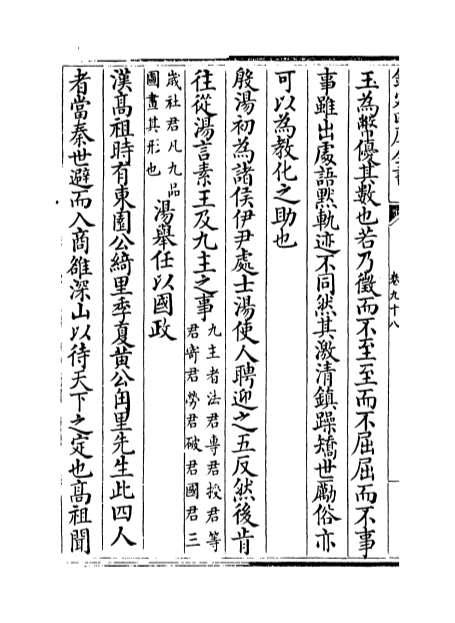 卷九十八
玉為幣優其數也若乃徵而不至至而不屈屈而不事
事雖出處語黙軌迹不同然其激清鎮躁矯世勵俗亦
可以為教化之助也
殷湯初為諸侯伊尹處士湯使人聘迎之五反然後肯
往從湯言素王及九主之事
九主者法君專君授君等
君寄君勞君破君國君三
歲社君凡九品
圖畫其形也
湯舉任以國政
漢髙祖時有東園公綺里季夏黄公甪里先生此四人
者當秦世避而入商雒深山以待天下之定也髙祖聞